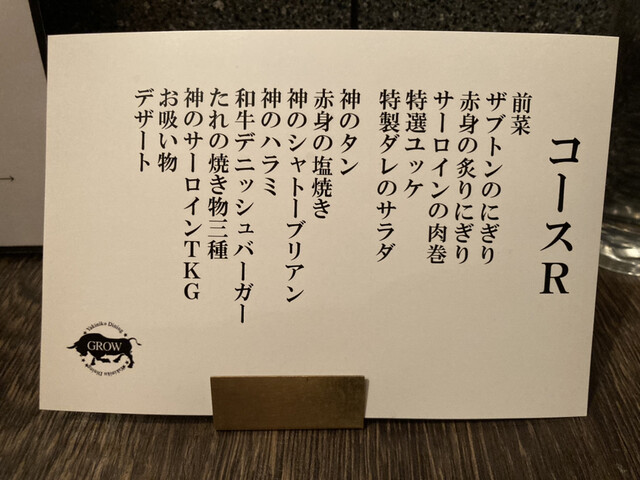 コースR
前菜
ザブトンのにぎり
赤身の炙りにぎり
サーロインの肉巻
特選ユッケ
特製ダレのサラダ
神のタン
赤身の塩焼き
神のシャトーブリアン
神のハラミ
和牛デニッシュバーガー
たれの焼き物三種
神のサーロインTKG
お吸い物
デザート
Yakiniku Dining
GROW
Yakiniku Dining